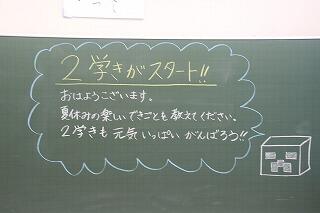 2学きがスタート!!
おはようございます。
夏休みの楽しいできごとを教えてください。
2学きも元気いっぱいがんばろう!!